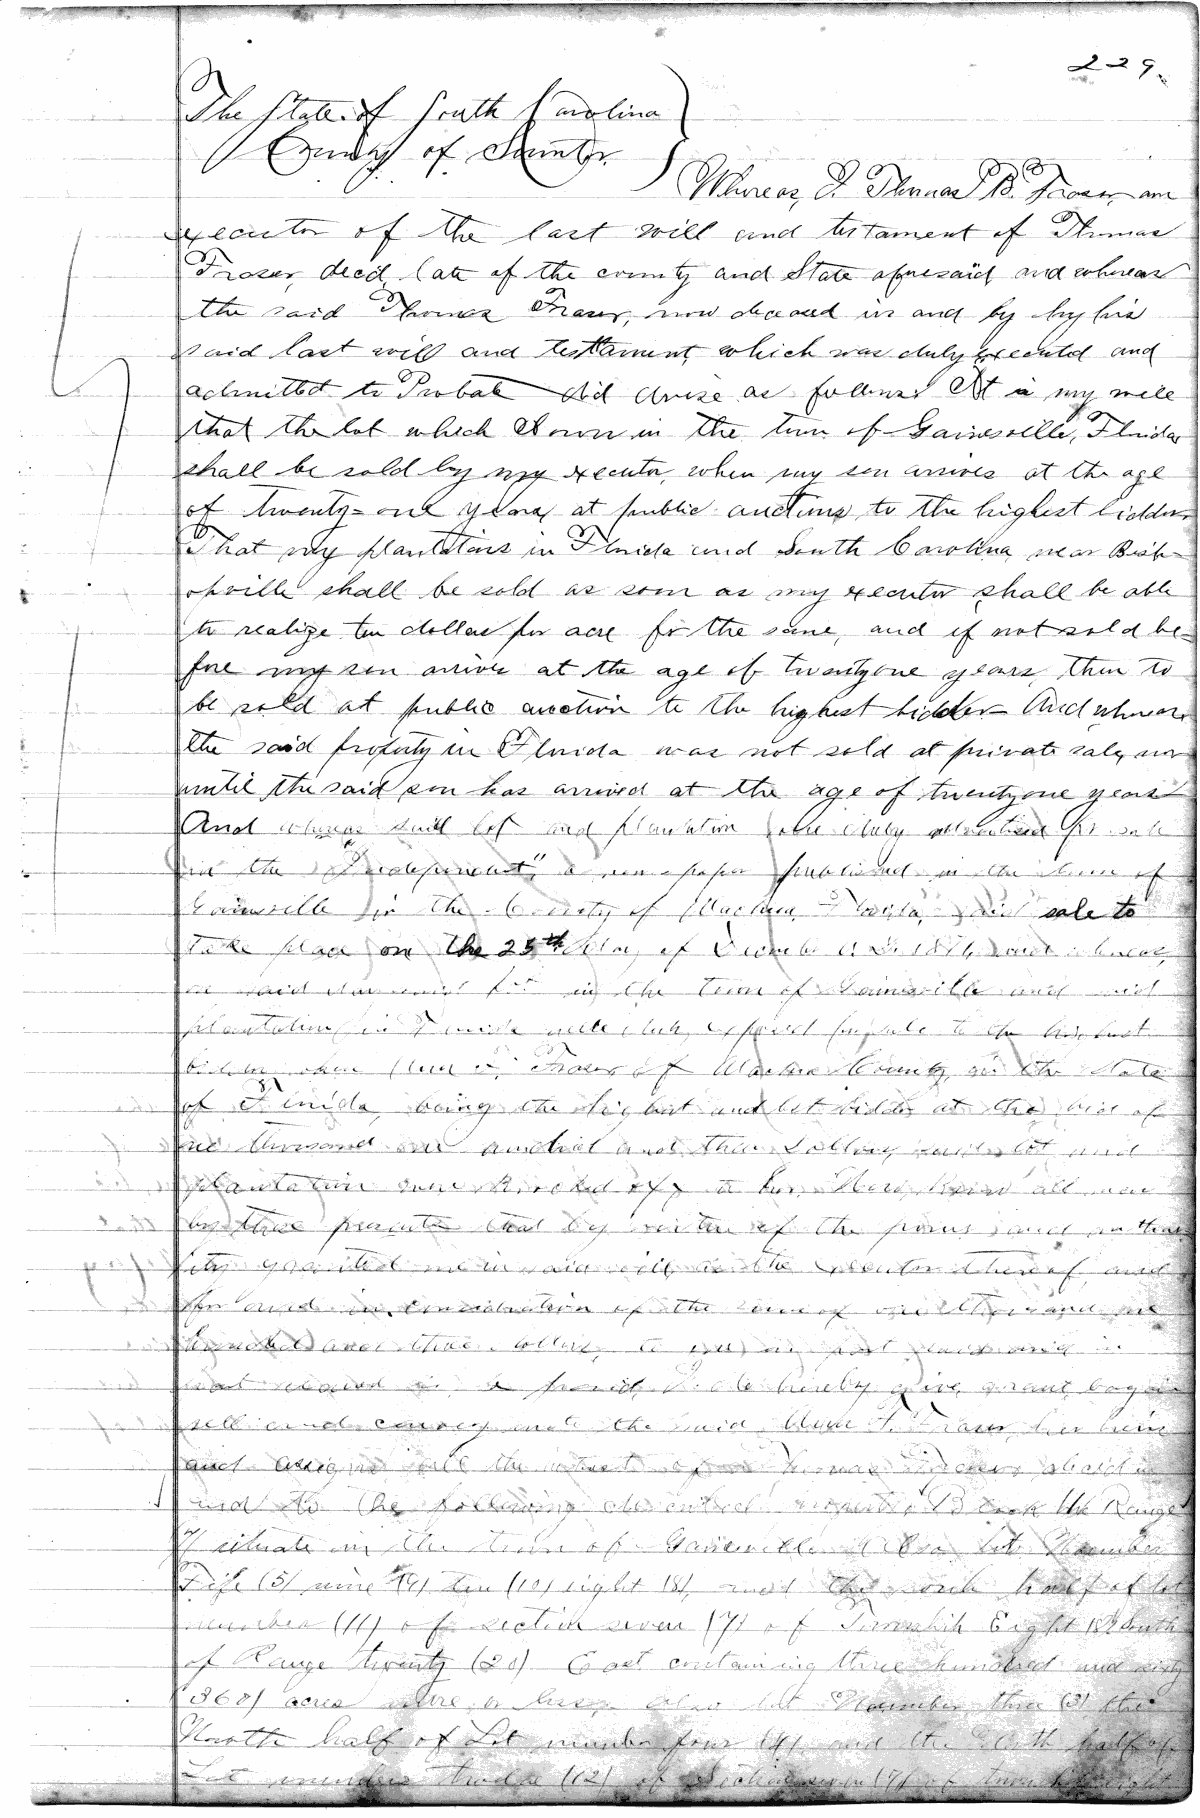 229.
The State of South Carolina
County of Sumter
Whereas, I. Thomas B. Fraser, am
executor of the last will and testament of Thomas
Fraser, decd, late of the county and State aforesaid and whereas
the said Thomas Fraser, now deceased in and by by his
said last will and testtament, which was duly executed and
admitted to Probate did devise as follows It is my will
that the lot which I own in the town of Gainesville, Florida
shall be sold by my executor, when my son arrives at the age
of twenty=one years, at public auctions, to the highest bidder,
That my plantations in Florida and South Carolina near Bish=
opville shall be sold as soon as my executor shall be able
to realize ten dollars per acre for the same, and if not sold be=
fore my son arrives at the age of twentyone years, then to
be sold at public auction to the highest bidder And whereas
the said property in Florida was not sold at private sale, nor
until the said son has arrived at the age of twentyone years
And whereas said lot and plantation were duly advertised for sale
in the "Independent", a newspaper published in the town of
Gainsville in the County of Alachua, Florida, said sale to
take place on the 25th day of December A.D. 187 and whereas,
on said day said lot in the town of Gainsville and said
plantation in Florida were duly exposed for sale to the highest
bidder when Ann Fraser of Alachua County, in the State
of Florida, being the highest and bst bidder at the bid of
one thousand one hundred and three dollars, said lot and
plantation were knocked off to her, Now, know all men
by these presents that by virtue of the power and author
ity granted me in said will as the executor thereof, and
for and in consideration of the sum of one thousand one
hundred and three dollars, to me in part paid and in
I do hereby give, grant, bargain
sell and convey unto the said Ann F. Fraser, her heirs
and assigns all the interest of Thomas Fraser, decd in
and to the following described property Block the Range
situate in the town of Gainesville Also lots Number
Five (5) nine (9) ten (10) eight (8), and the south half of lot
number (11) of section seven (7) of Township Eight (8) South
of Range twenty (20) East containing three hundred and sixty
(360) acres more or less, also lot Number three (3) the
North half of Lot number four (4) and the North half of
Lot number twelve (12) of Section seven (7) of township eight